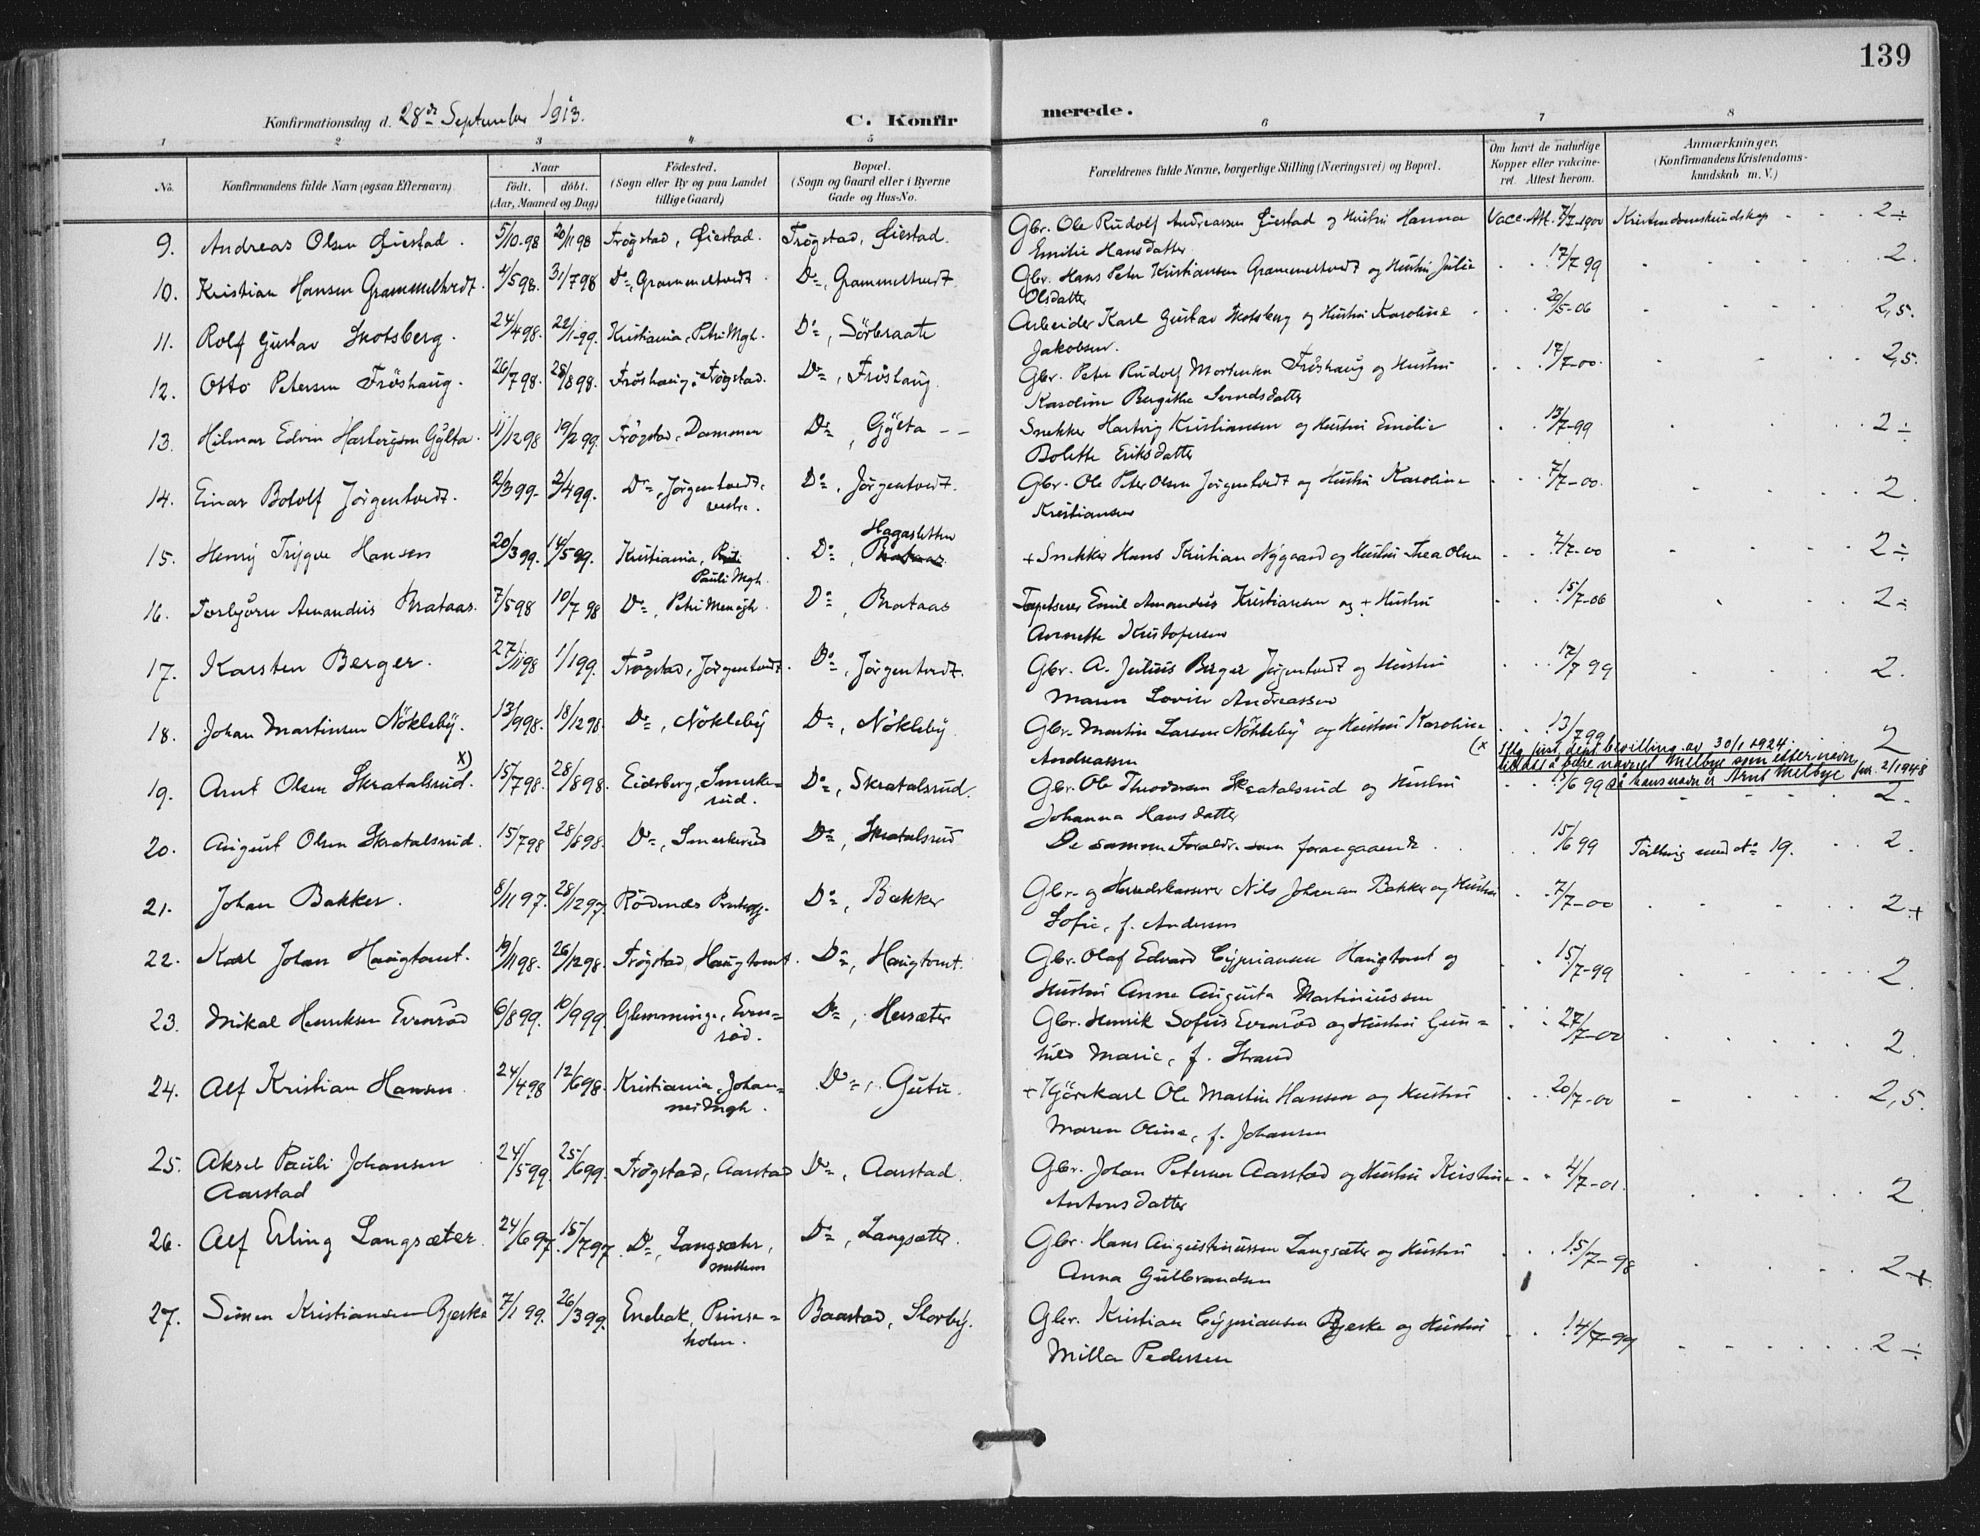 139
Konfirmationsdag d. 28de September 1913. C. Konfirmerede.
1 2 3 4 5 6 7 8
No. Konfirmandens fulde Navn (ogsaa Efternavn) Naar født. døbt. (Aar, Maaned og Dag) Fødested. (Sogn eller By og paa Landet tillige Gaard) Bopæl. (Sogn og Gaard eller i Byerne Gade og Hus-No. Forældrenes fulde Navne, borgerlige Stilling (Næringsvei) og Bopæl. Om havt de naturlige Kopper eller vakcineret. Attest herom. Anmærkninger. (Konfirmandens Kristendomskundskab m. V.)
9. Andreas Olsen Øiestad. 5/10 98 20/11 98 Trøgstad, Øiestad. Trøgstad, Øiestad. Gbr. Ole Rudolf Andreassen Øiestad og Hustru Hanna Vacc. Att. 7/7-1900 Kristendomskundskap 2÷
Emilie Hansdatter
10. Kristian Hansen Grammeltvedt. 4/5 98. 31/7 98 Do, Grammeltvedt Do, Grammeltvedt Gbr. Hans Peter Kristiansen Grammeltvedt og Hustru Julie 17/7 99 2.
Olsdatter
11. Rolf Gustav Skotsberg. 24/4 98. 22/1-99. Kristiania, Petri Mgh. Do, Sörbraate Arbeider Karl Gustav Skotsberg og Hustru Karoline 29/5-06 2,5.
Jakobsen.
12. Otto Petersen Fröshaug. 26/7 98. 28/8 98. Fröshaug, Trøgstad. Do, Fröshaug Gbr. Peter Rudolf Mortensen Fröshaug og Hustru 17/7-00. 2,5.
Karoline Bergithe Svendsdatter
13. Hilmar Edvin Hartvigsen Gylta. 11/12 98 19/2 99. Trøgstad, Dammen Do, Gylta - - Snekker Hartvig Kristiansen og Hustru Emilie 13/7-99 2÷
Bolette Eriksdatter
14. Einar Botolf Jörgentvedt. 2/3 99. 2/4 99. Do, Jörgentvedt, vestre. Do, Jörgentvedt. Gbr. Ole Peter Olsen Jörgentvedt og Hustru Karoline 7/7-00. 2.
Kristiansen
15. Henry Trygve Hansen 20/3 99. 14/5 99. Kristiania, Pauli Mgh. Do, Hagasletten + Snekker Hans Kristian Nygaard og Hustru Thea Olsen 7/7-00 2÷
16. Torbjörn Amandus Brataas. 7/5 98 10/7 98 Do, Petri Menigh. Do, Brataas Tapetserer Emil Amandus Kristiansen og + Hustru 15/7-06 2÷
Annette Kristofersen
17. Karsten Berger. 27/11 98 1/1 99. Trøgstad, Jörgentvedt. Do, Jörgentvedt. Gbr. A. Julius Berger Jörgentvedt og Hustru 17/7 99 2.
Maren Lovise Andreassen
18. Johan Martinsen Nökleby. 13/9 98. 18/12 98. Do, Nökleby Do, Nökleby. Gbr. Martin Larsen Nökleby og Hustru Karoline 13/7 99 2
Andreassen
(x iflg. just. dept. bevilling av 30/1 1924.
tillatt å bære navnet Melbye som etternavn
så hans navn er Arnt Melbye jnr. 2/1948
19. Arnt Olsen Skratalsrud. x) 15/7 98. 28/8 98. Eidsberg, Smerkerud. Do, Skratalsrud. Gbr. Ole Thoresen Skratalsrud og Hustru 15/6 99 2.
Johanna Hansdatter
20. August Olsen Skratalsrud. 15/7 98 28/8 98. Do, Smerkerud Do, Skratalsrud De samme Foreldre som foregaaende. 15/6 99 Tvilling med No 19. 2.
21. Johan Bakker. 8/11 97. 28/12 97. Rödenæs Prestegj. Do, Bakker Gbr. og Nils Johansen Bakker og Hustru 7/7-00 2+
Sofie, f. Andersen
22. Karl Johan Haugtomt. 19/11 98. 26/12 98. Trøgstad, Haugtomt. Do, Haugtomt. Gbr. Olaf Edvard Cypriansen Haugtomt og 15/7-99 2.
Hustru Anne Augusta Martiniussen
23. Mikal Henriksen Evenröd 6/8 99. 10/9 99. Glemminge, Evenröd. Do, Hersæter Gbr. Henrik Sofus Evenröd og Hustru Gunhild 27/7-00 2.
Marie, f. Strand
24. Alf Kristian Hansen. 24/4 98 12/6 98. Kristiania, Johannes Mgh. Do, Gutu. + Kjörekarl Ole Martin Hansen og Hustru 20/7-00 2,5.
Maren Oline, f. Johansen
25. Aksel Pauli Johansen 24/5 99. 25/6 99. Trøgstad, Aarstad Do, Aarstad. Gbr. Johan Petersen Aarstad og Hustru Kristine 4/7-01. 2
Aarstad Antonsdatter
26. Alf Erling Langsæter. 24/6 97. 15/7 97. Do, Langsæter, mellem Do, Langsæter. Gbr. Hans Augustinussen Langsæter og Hustru 15/7-98 2+
Anna Gulbrandsen
27. Simen Kristiansen Bjerke 7/1 99. 26/3 99. Enebak, Prinseholen. Baastad, Slorby. Gbr. Kristian Cypriansen Bjerke og Hustru 14/7-99 2÷
Milla Pedersen